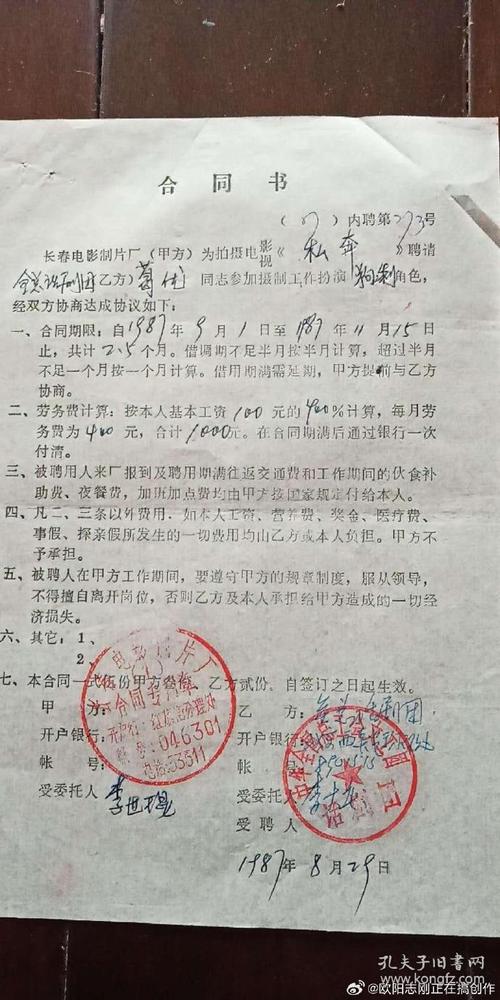 合同书
(87)内聘第273号
长春电影制片厂（甲方）为拍摄电影视《私奔》聘请
全总话剧团（乙方）葛优同志参加摄制工作扮演角色，
经双方协商达成协议如下：
一、合同期限：自1987年9月1日至1987年11月15日
止，共计2.5个月。借调期不足半月按半月计算，超过半月
不足一个月按一个月计算。借用期满需延期，甲方提前与乙方
协商。
二、劳务费计算：按本人基本工资100元的400%计算，每月劳
务费为400元，合计1000元。在合同期满后通过银行一次
付清。
三、被聘用人来厂报到及聘用期满往返交通费和工作期间的伙食补
助费、夜餐费，加班加点费均由甲方按国家规定付给本人。
四、凡二、三条以外费用．如本人工资、营养费、奖金、医疗费、
事假、探亲假所发生的一切费用均由乙方或本人负担。甲方不
予承担。
五、被聘人在甲方工作期间，要遵守甲方的规章制度，服从领导，
不得擅自离开岗位，否则乙方及本人承担给甲方造成的一切经
济损失。
六、其它：1、
2、
七、本合同一式伍份甲方叁份，乙方贰份。自签订之日起生效。
甲方：
乙方：全总话剧团
开户银行：
开户银行：
帐号：
帐号：
受委托人
受委托人
受聘人
电影制片厂
合同专用章
开户行：红旗街办理处
帐号：046301
电话：53311
1987年8月29日
孔夫子旧书网
www.kongfz.com
@欧阳志刚正在搞创作